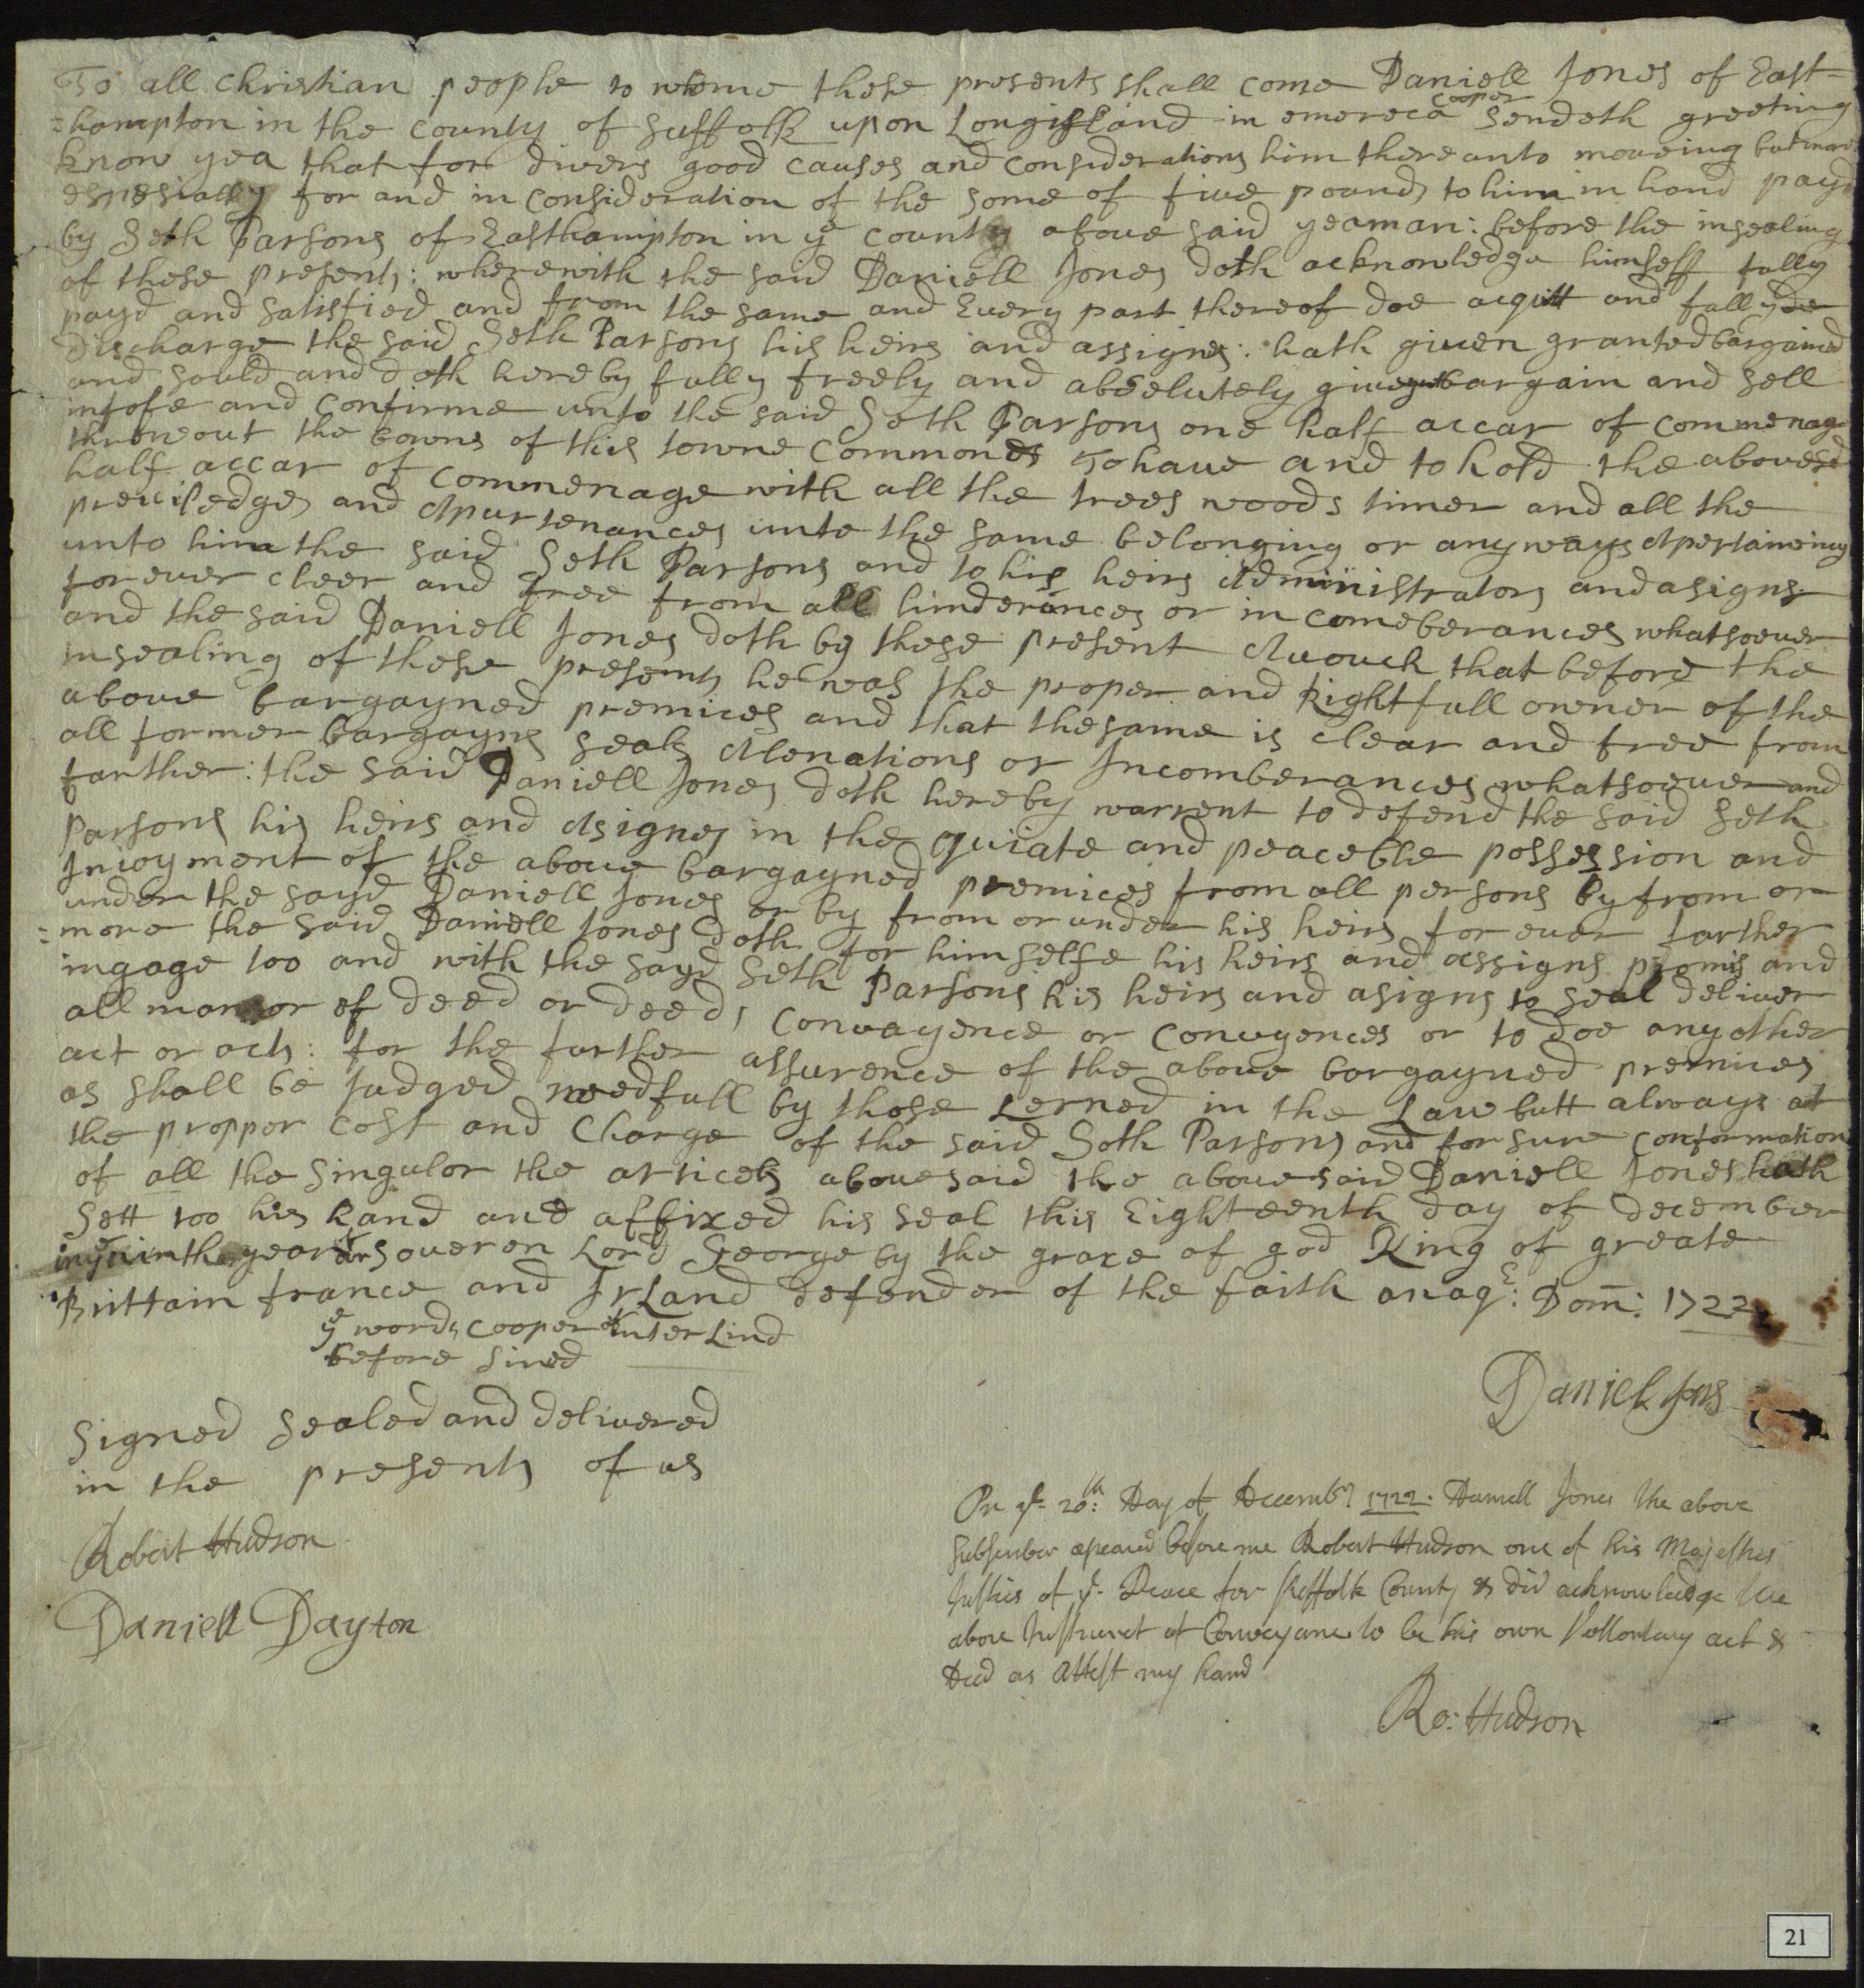 To all Christian people to whome these presents shall come Daniell Jones of East=
=hampton in the County of Suffolk upon Longisland in emereca cooper sendeth greeting
know yea that for divers good causes and considerations him thereunto moveing but more
espesially for and in consideration of the some of five pounds to him in hand payd
by Seth Parsons of Easthampton in ye county above said yeaman: before the insealing
of these presents: wherewith the said Daniell Jones doth acknowledge himself fully
payd and satisfied and from the same and Every part thereof doe acquitt and fully de
discharge the said Seth Parsons his heirs and assignes: hath given granted bargained
and sould and doth hereby fully freely and absolutely give bargain and sell
infofe and confirme unto the said Seth Parsons one half accar of commenage
throweout the bowns of this towne commons To have and to hold the abovesd
half accar of commenage with all the trees woods timer and all the
preuiledges and Apurtenances unto the same belonging or anyways Apertaineing
unto him the said Seth Parsons and to his heirs Administrators and asigns
for ever cleer and free from all hinderances or incomeberances whatsoever
and the said Daniell Jones doth by these present Avouch that before the
insealing of these presents he was the proper and Rightfull owner of the
above bargayned premices and that the same is clear and free from
all former bargayns seals Alenations or Incomberances whatsoever and
farther: the said Daniell Jones doth hereby warrent to defend the said Seth
Parsons his heirs and Asignes in the quiate and peaceble possession and
Injoyment of the above bargayned premices from all persons by from or
under the sayd Daniell Jones or by from or under his heirs for ever farther
=more the said Daniell Jones doth for himselfe his heirs and assigns promis and
ingage too and with the sayd Seth Parsons his heirs and asigns to seal deliver
all manor of deed or deeds convayence or convyences or to doe any other
act or acts: for the further assurence of the above bargayned premices
as shall be judged needfull by those Lerned in the Law butt always at
the proppor cost and Charge of the said Seth Parsons and for sure conformation
of all the singulor the articels abovesaid the abovesaid Daniell Jones hath
Sett too his hand and affixed his seal this Eighteenth day of december
in ye ninth year of our soveren Lord George by the grace of god King of greate
Brittain france and Irland defender of the faith anaqe: Dom: 1722
ye words cooper & of Inter Lind
before sined
Daniel Jons
Signed sealed and delivered
in the presents of us
Robert Hudson
Daniell Dayton
On ye 20th: Day of Decembr 1722. Daniell Jones the above
Subscriber apeared before me Robert Hudson one of his Majesties
Justies of ye Peace for Suffolk County & did acknowledge the
above Instrument of Conveyance to be his own Vollontary act &
Deed as Attest my hand
Ro: Hudson
21